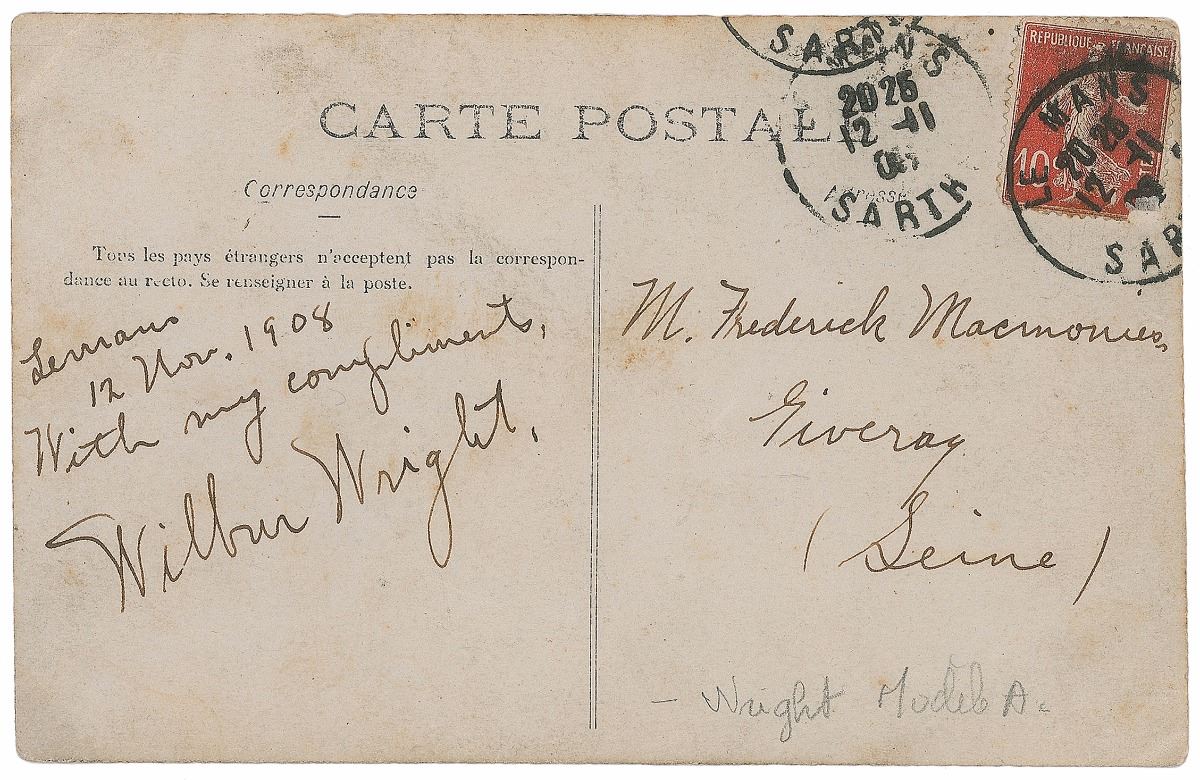 CARTE POSTALE
Correspondance
Tous les pays étrangers n'acceptent pas la correspon-
dance au recto. Se renseigner à la poste.
Lemans
12 Nov. 1908
With my compliments,
Wilbur Wright.
SARTHE
MANS
20 26
12 -11
08
SARTH
REPUBLIQUE FRANÇAISE
10
LE MANS
20 26
12 -11
SAR
M. Frederick Macmonies,
Giverny
(Seine)
- Wright Model A.